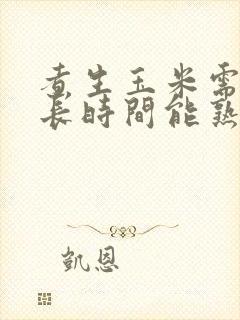 煮生玉米需
長時間能熟
凱恩